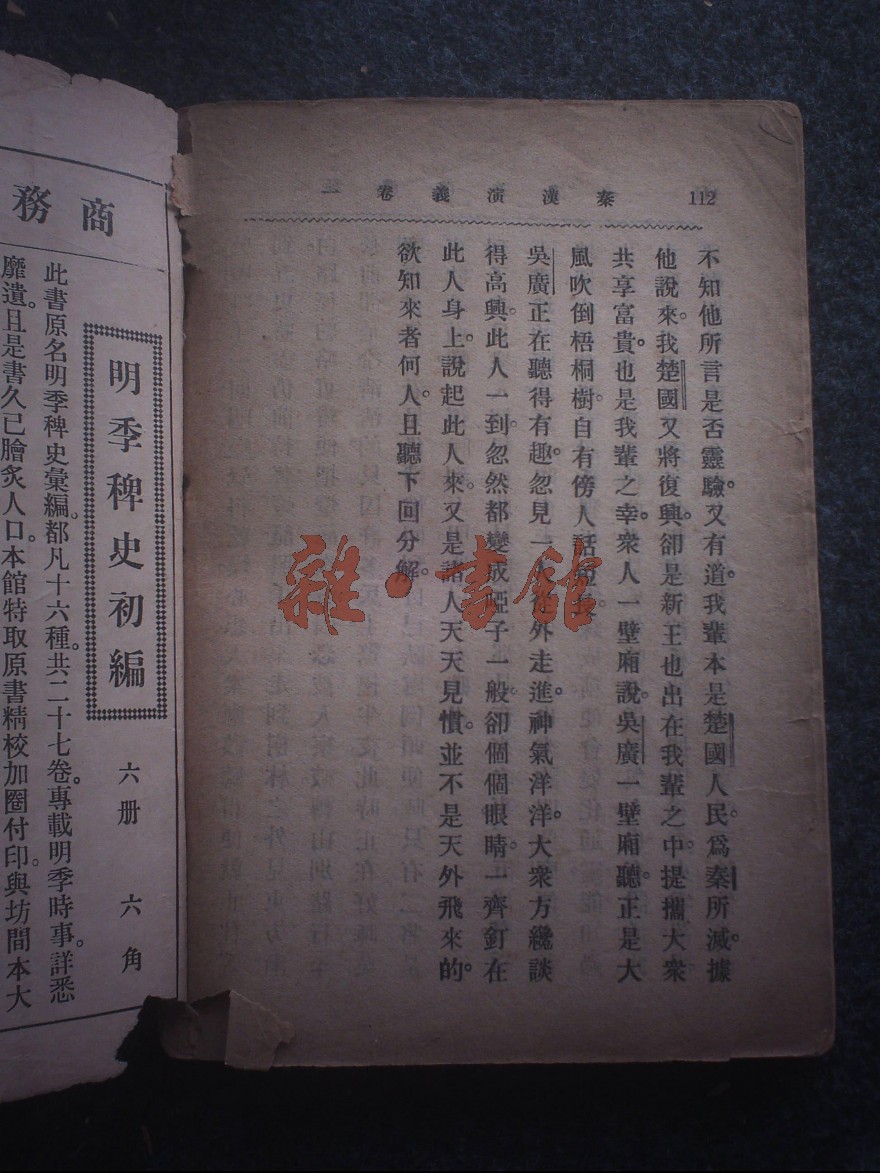 112 秦漢演義卷一
不知他所言是否靈驗。又有道。我輩本是楚國人民。爲秦所滅。據
他說來。我楚國又將復興。卻是新王也出在我輩之中。提攜大衆
共享富貴。也是我輩之幸。衆人一壁廂說。吳廣一壁廂聽。正是大
風吹倒梧桐樹。自有傍人話短長。
吳廣正在聽得有趣。忽見一人從外走進。神氣洋洋。大衆方纔談
得高興。此人一到。忽然都變成啞子一般。卻個個眼睛。一齊釘在
此人身上。說起此人來。又是諸人天天見慣。並不是天外飛來的。
欲知來者何人。且聽下回分解。
雜·書館
商務
明季稗史初編
六册 六角
此書原名明季稗史彙編。都凡十六種。共二十七卷。專載明季時事。詳悉
靡遺。且是書久已膾炙人口。本館特取原書精校加圈付印。與坊間本大